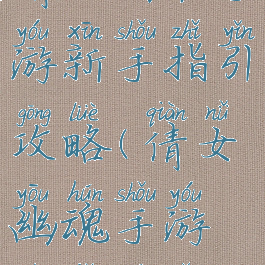 yóu xīn shǒu zhǐ yǐn
游新手指引
gōng lüè qiàn nǚ
攻略(倩女
yōu hún shǒu yóu
幽魂手游